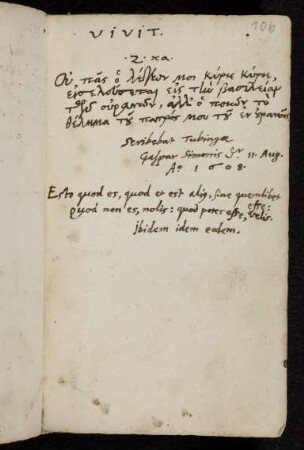 106
VIVIT.
·Ζ· κα
Οὐ πᾶς ὁ λέγων μοι Κύριε Κύριε,
εἰσελεύσεται εἰς τὴν βασιλείαν
τῶν οὐρανῶν, ἀλλ' ὁ ποιῶν τὸ
θέλημα τοῦ πατρός μου τοῦ ἐν οὐρανοῖς
Scribebat Tubingæ
Caspar Simonis 11 Aug.
Ao 1608.
Esto quod es, quod et est aliq, sine quemlibet esse:
Quod non es, nolis: quod potes esse, velis.
Ibidem idem eodem.